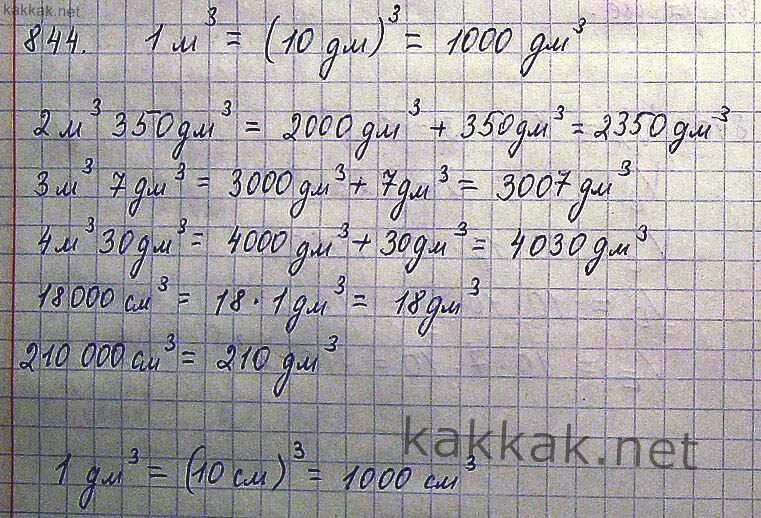 kakkak.net
844. 1 м³ = (10 дм)³ = 1000 дм³
2 м³ 350 дм³ = 2000 дм³ + 350 дм³ = 2350 дм³
3 м³ 7 дм³ = 3000 дм³ + 7 дм³ = 3007 дм³
4 м³ 30 дм³ = 4000 дм³ + 30 дм³ = 4030 дм³
18000 см³ = 18 · 1 дм³ = 18 дм³
210 000 см³ = 210 дм³
kakkak.net
1 дм³ = (10 см)³ = 1000 см³